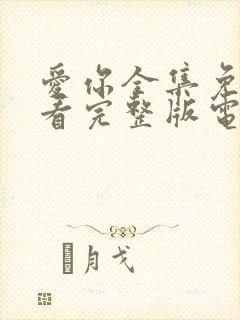 愛你全集免
看完整版電
月戈